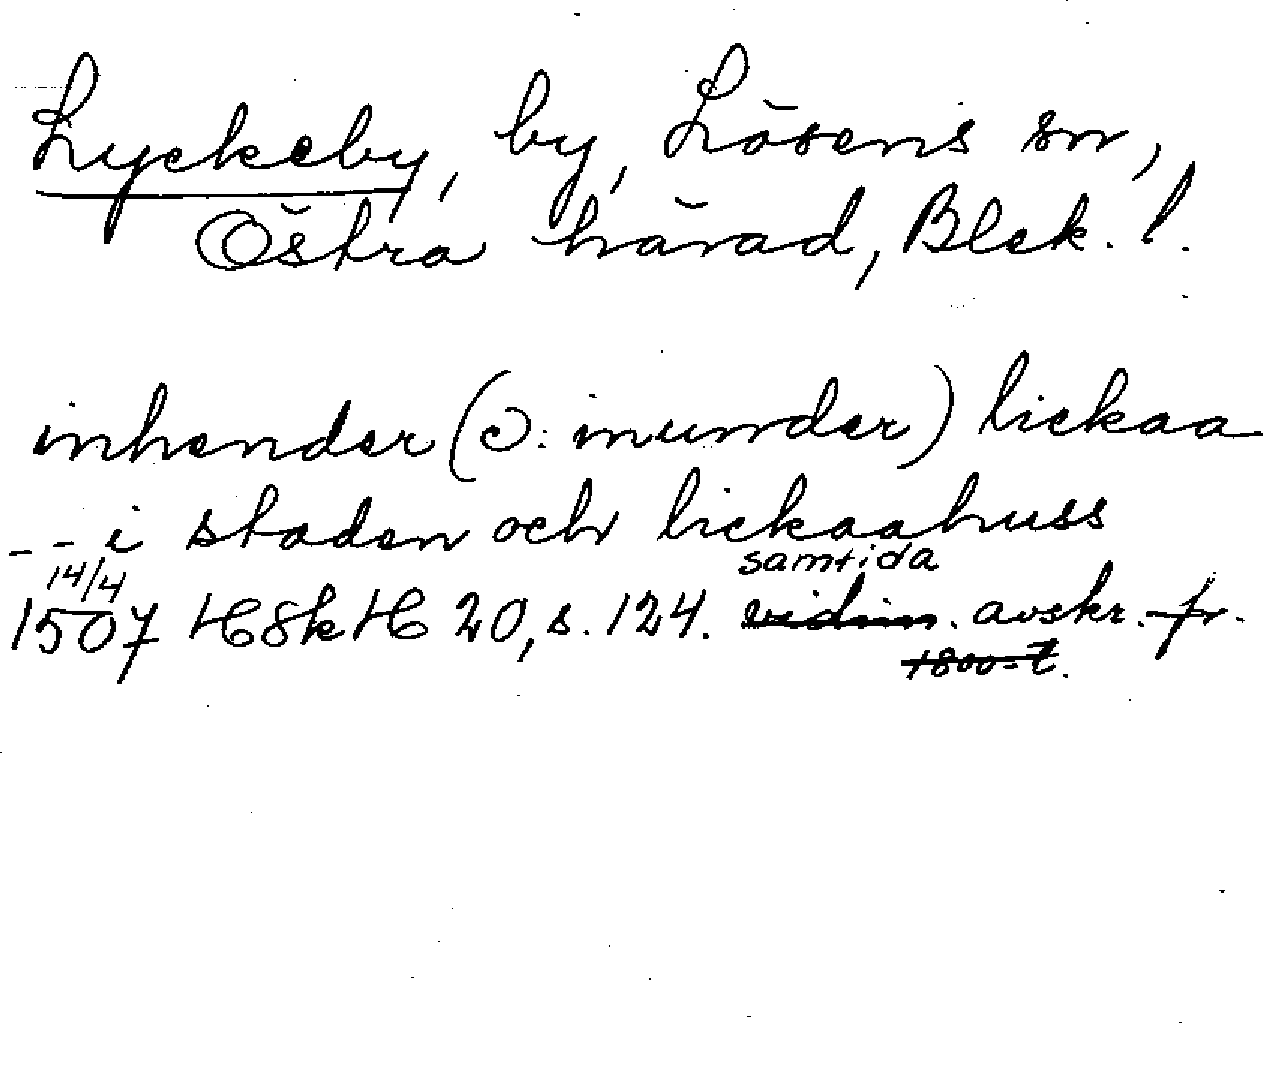 Lyckeby, by, Lösens sn,
Östra härad, Blek. l.
inhender (ɔ: inunder) lickaa
-- i staden och lickaahuss
samtida
14/4
1507 HSkH 20, s. 124. vidim. avskr. fr.
1800-t.